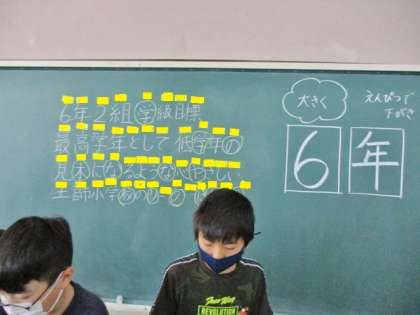 6年2組学級目標
最高学年として低学年の
見本になるような心やさしい
土師小学校の
大きく
6年
えんぴつで
下がき
REVOLUTION